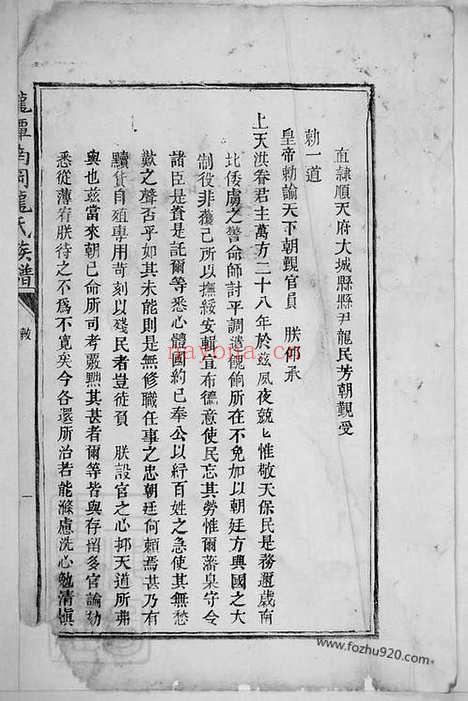 直隸順天府大城縣縣尹龍民芳朝覲受
勅一道
皇帝勅諭天下朝覲官員 朕邠承
上天洪眷君主萬方二十八年於茲夙夜兢匕惟敬天保民是務邇歲南
北倭虜之警命師討平調遣餽餉所在不免加以朝廷方興國之大
制役非獲己所以撫綏安輯宣布德意使民忘其勞惟爾藩臬守令
諸臣是賁是託爾等悉心體國約已奉公以紓百姓之急使其無愁
歎之聲否乎如其未能則是無修職任事之忠朝廷何賴焉甚乃有
黷貨自殖專用苛刻以殘民者豈徒負 朕設官之心抑天道所弗
與也茲當來朝已命所司考覈黜其甚者爾等皆與存留多官論劾
悉從薄宥朕待之不爲不寬矣今各還所治若能滌慮洗心勉清愼
龍譚南岡龍氏族譜
敕
一
nayona.cn
www.fozhu920.com